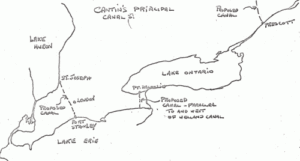 CANTIN'S PROPOSED
CANALS.
PROPOSED
CANAL
PRESCOTT
LAKE
HURON
ST. JOSEPH
LAKE ONTARIO
LONDON
PROPOSED
CANAL
PROPOSED
CANAL - PARALLEL
TO AND WEST
OF WELLAND CANAL
PORT
STANLEY
LAKE ERIE